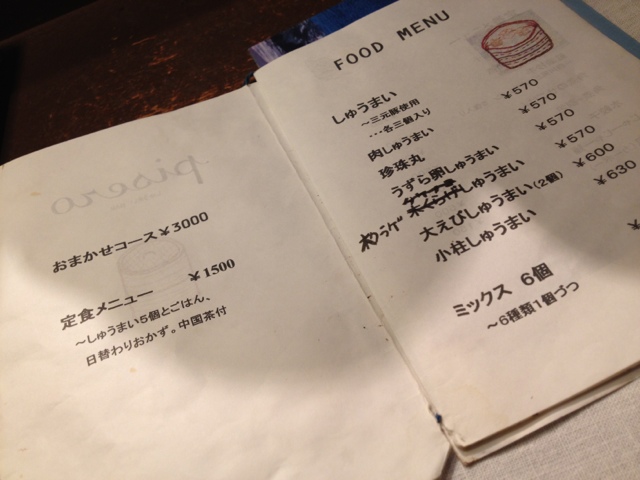 pisero
おまかせコース ¥3000
定食メニュー ¥1500
～しゅうまい5個とごはん、
日替わりおかず。中国茶付
FOOD MENU
しゅうまい
～三元豚使用
・・・各三個入り
肉しゅうまい ¥570
珍珠丸 ¥570
うずら卵しゅうまい ¥570
木クラゲ しゅうまい ¥570
大えびしゅうまい(2個) ¥600
小柱しゅうまい ¥630
ミックス 6個 ¥
～6種類1個づつ